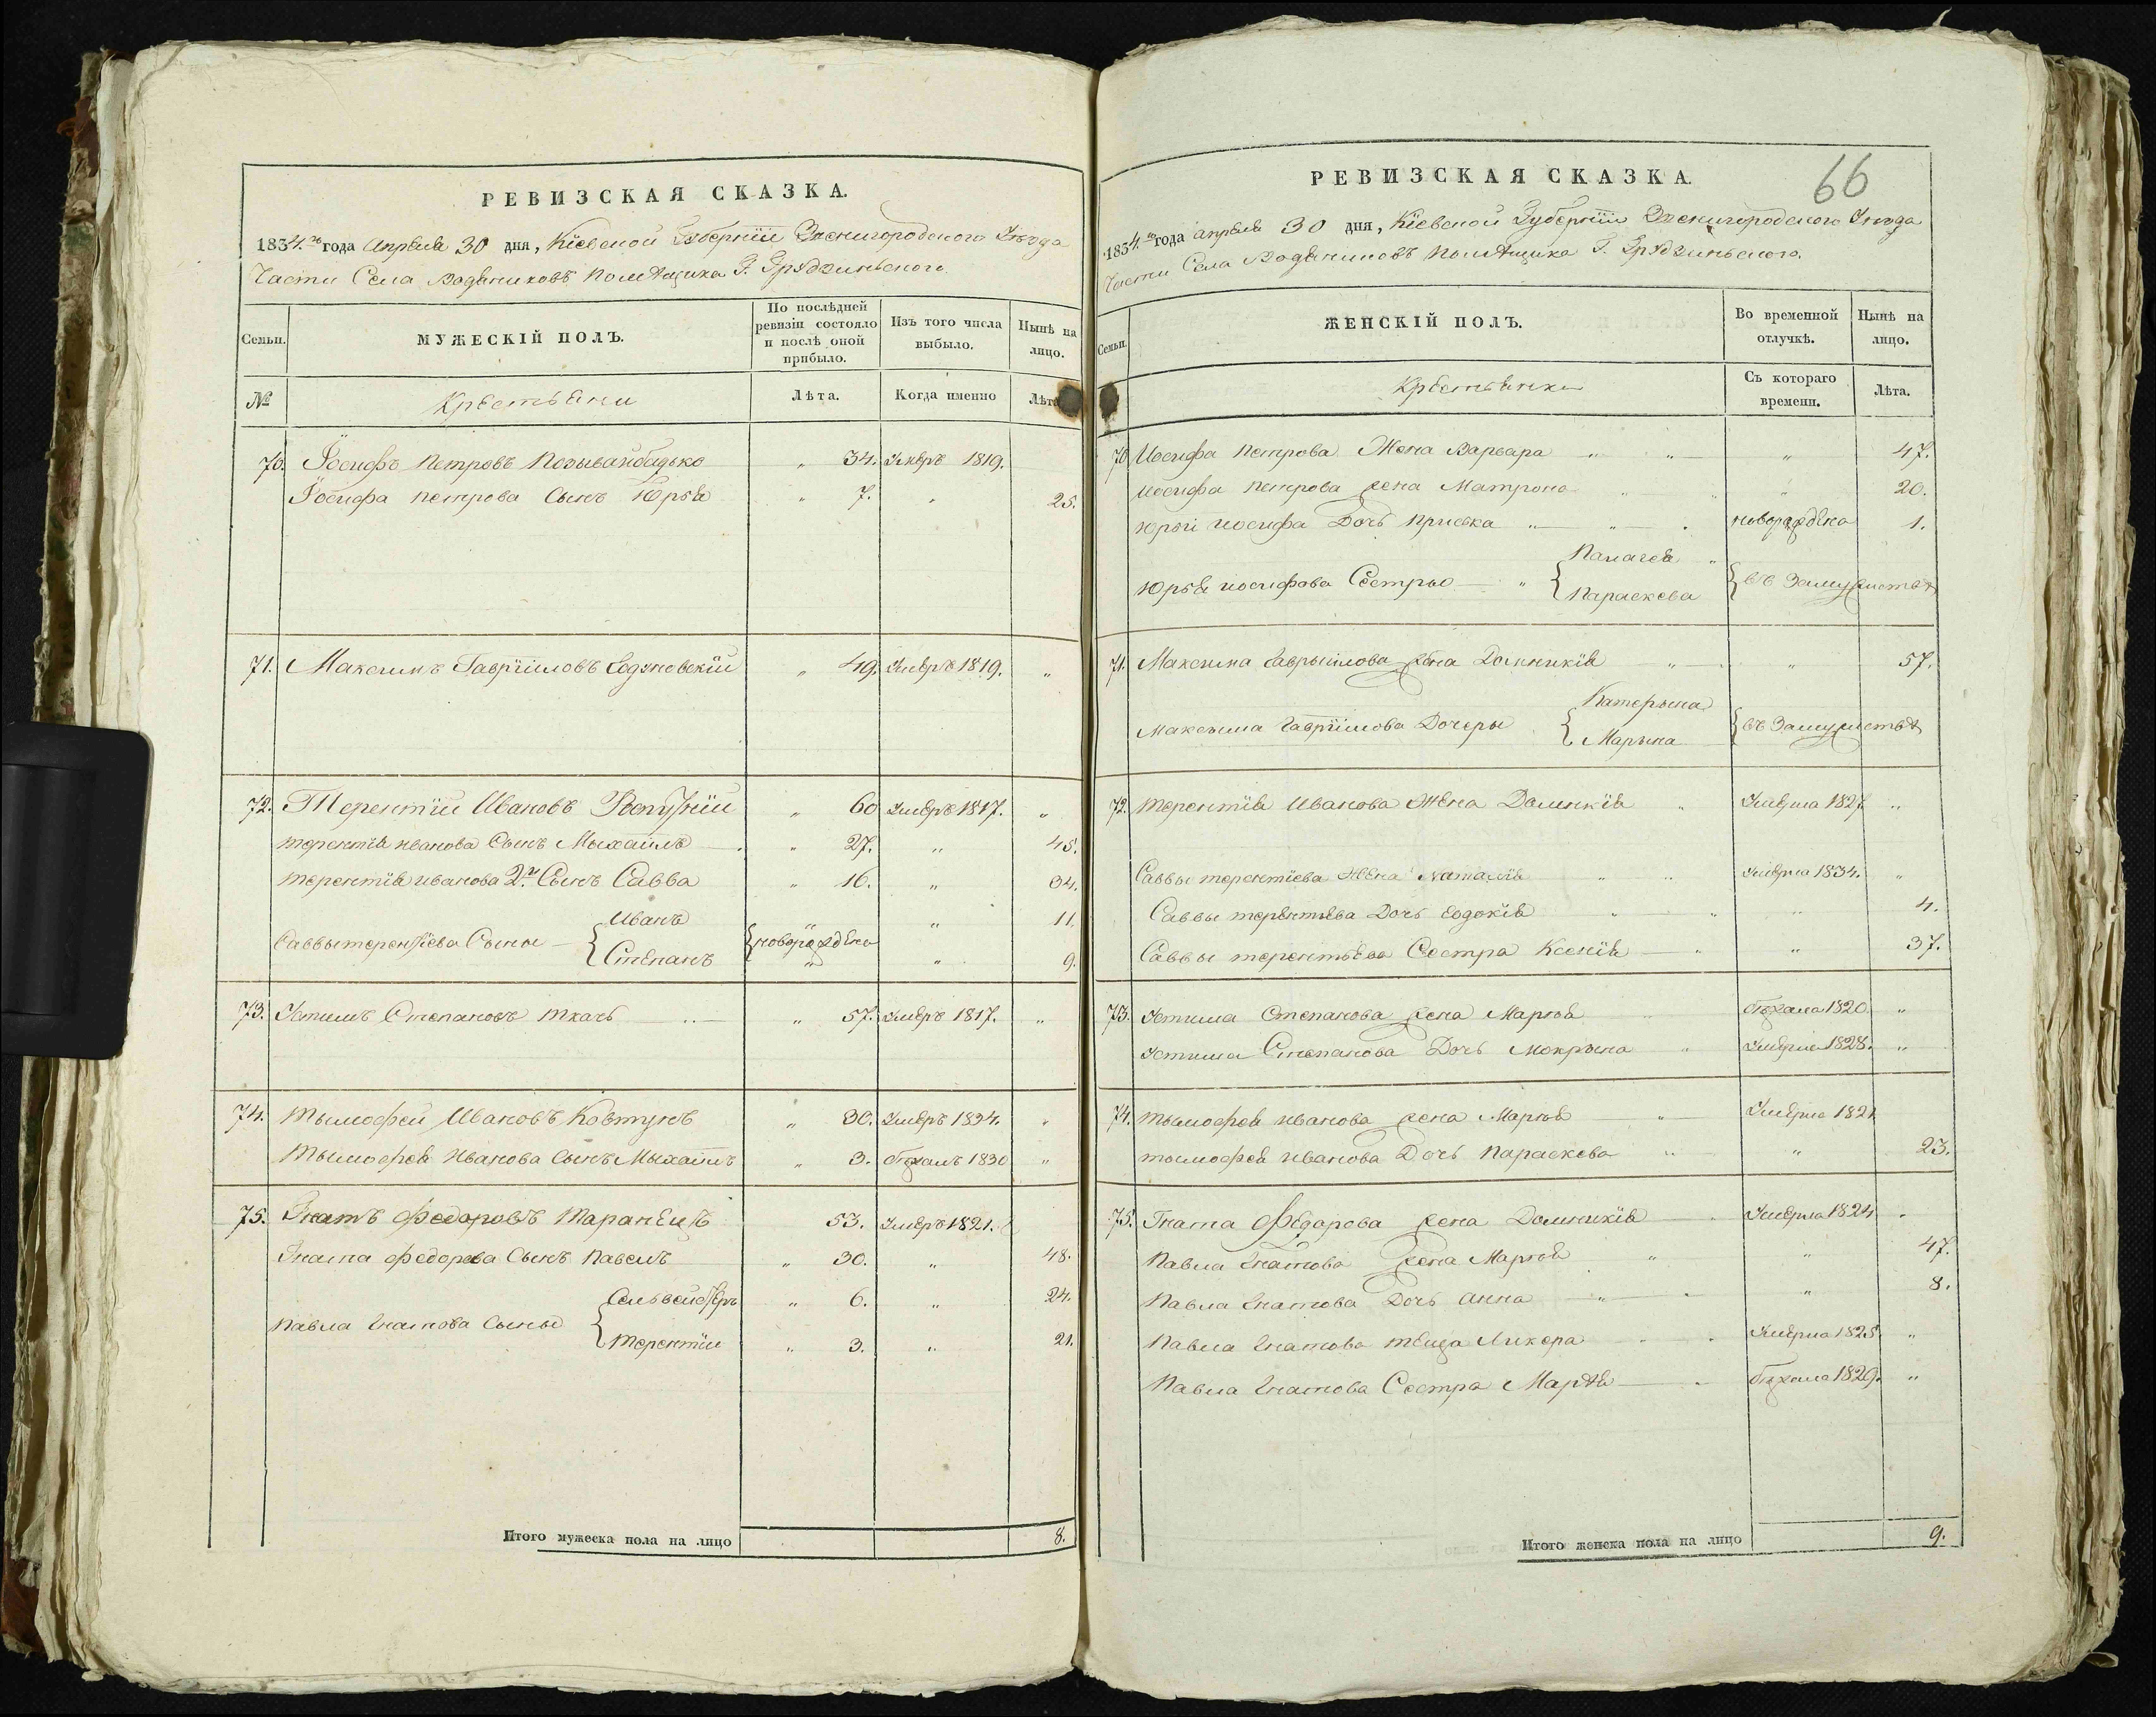 РЕВИЗСКАЯ СКАЗКА.
1834.го года Апреля 30 дня, Кіевской Губерніи Звенигородского Уезда
Части Села Водяниковъ помѣщика Г. Грудзинского.
Семьи.
МУЖЕСКІЙ ПОЛЪ.
По послѣдней ревизіи состояло и послѣ оной прибыло.
Изъ того числа выбыло.
Нынѣ на лицо.
№
Крестьяни
Лѣта.
Когда именно
Лѣта
70. Іосифъ Петровъ Позывайбидько " 34. Умеръ 1819.
Іосифа Петрова Сынъ Юрья " 7. " 25.
71. Максимъ Гавріиловъ " 49. Умеръ 1819. "
72. Терентій Ивановъ " 60 Умеръ 1817. "
терентія иванова Сынъ Мыхаилъ " 27. " 45.
терентія иванова 2й Сынъ Савва " 16. " 34.
Саввы терентіева Сыны { Иванъ { новорождена " 11.
Степанъ " " 9.
73. Устимъ Степановъ Ткачъ " 57. Умеръ 1817. "
74. Тымофей Ивановъ Ковтунъ " 30. Умеръ 1834. "
Тымофея Иванова Сынъ Мыхаилъ " 3. бѣжалъ 1830 "
75. Гнатъ Федоровъ Таранецъ 53. Умеръ 1821.
Гната Федорова Сынъ Павелъ " 30. " 48.
Павла Гнатова Сыны { Сельвейстеръ " 6. " 24.
Терентій " 3. " 21.
Итого мужеска пола на лицо 8.
66
РЕВИЗСКАЯ СКАЗКА.
1834.го года Апреля 30 дня, Кіевской Губерніи Звенигородского Уезда
Части Села Водяниковъ помѣщика Г. Грудзинского.
Семьи.
ЖЕНСКІЙ ПОЛЪ.
Во временной отлучкѣ.
Нынѣ на лицо.
Крестьянки
Съ котораго времени.
Лѣта.
70 Иосифа Петрова Жена Варвара " " " 47.
Иосифа Петрова жена Матрона " " " 20.
юрьи иосифа Дочь приська " " новорождена 1.
Юрья иосифова Сестры " { Палагея "
Параскева { въ Замужствѣ
71. Максима Гаврыилова жена Домникія " " 57.
Максыма Гавріилова Дочеры { Катерына
Марына { въ Замужствѣ
72. Терентія Иванова Жена Домникія " Умерла 1827 "
Саввы терентіева Жена Наталія " " Умерла 1834. "
Саввы терентьева Дочь Еодокія " " " 4.
Саввы терентьева Сестра Ксенія " " 37.
73. Устима Степанова жена Марья бѣжала 1820 "
Устима Степанова Дочь Мокрына " Умерла 1828. "
74. Тымофея иванова жена Марья " Умерла 1821
тымофея иванова Дочь Параскева " " 23.
75. Гната Федорова жена Домникія Умерла 1824 "
Павла Гнатова жена Марья " " 47.
Павла Гнатова Дочь Анна " " 8.
Павла Гнатова теща Ликера Умерла 1825 "
Павла Гнатова Сестра Марѣя бѣжала 1829. "
Итого женска пола на лицо 9.